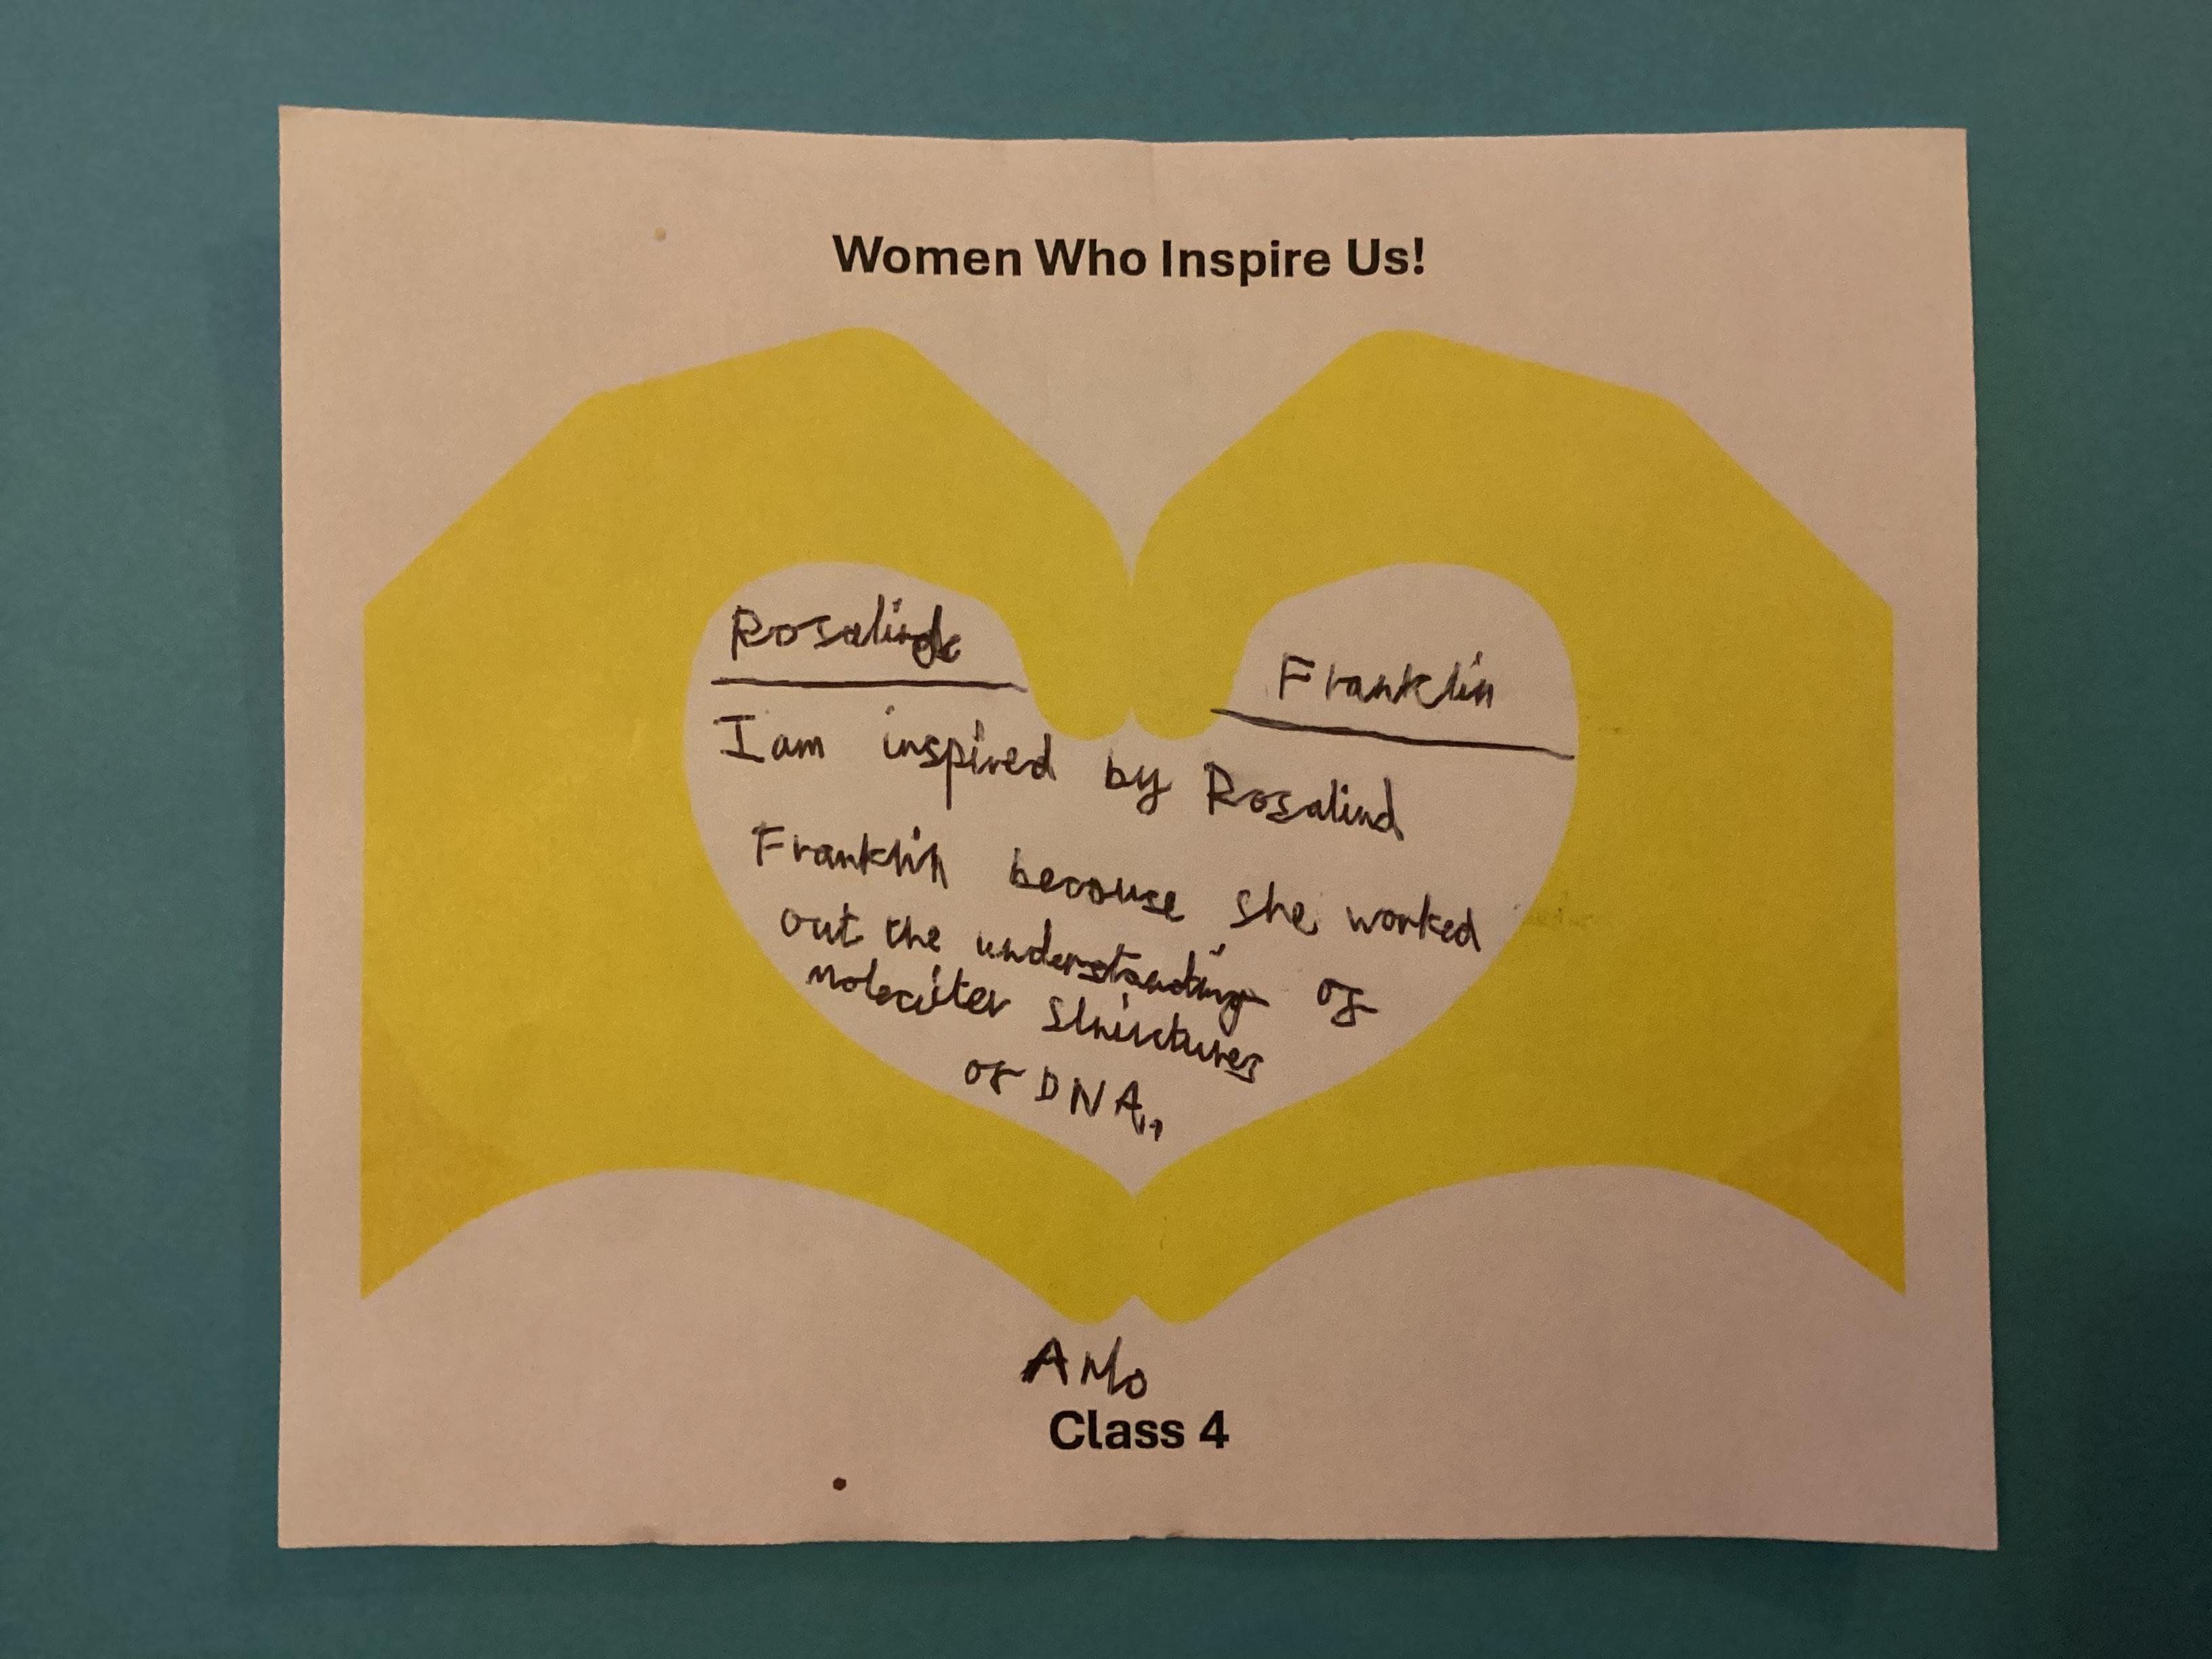 Women Who Inspire Us!
Rosalind Franklin
I am inspired by Rosalind
Franklin because she worked
out the understanding of
moleculer structures
of DNA
AMo
Class 4